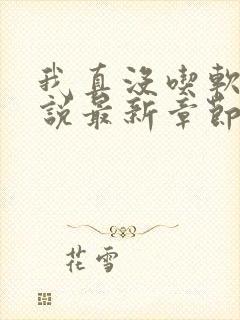 我真没喫軟
說最新章節
花雪